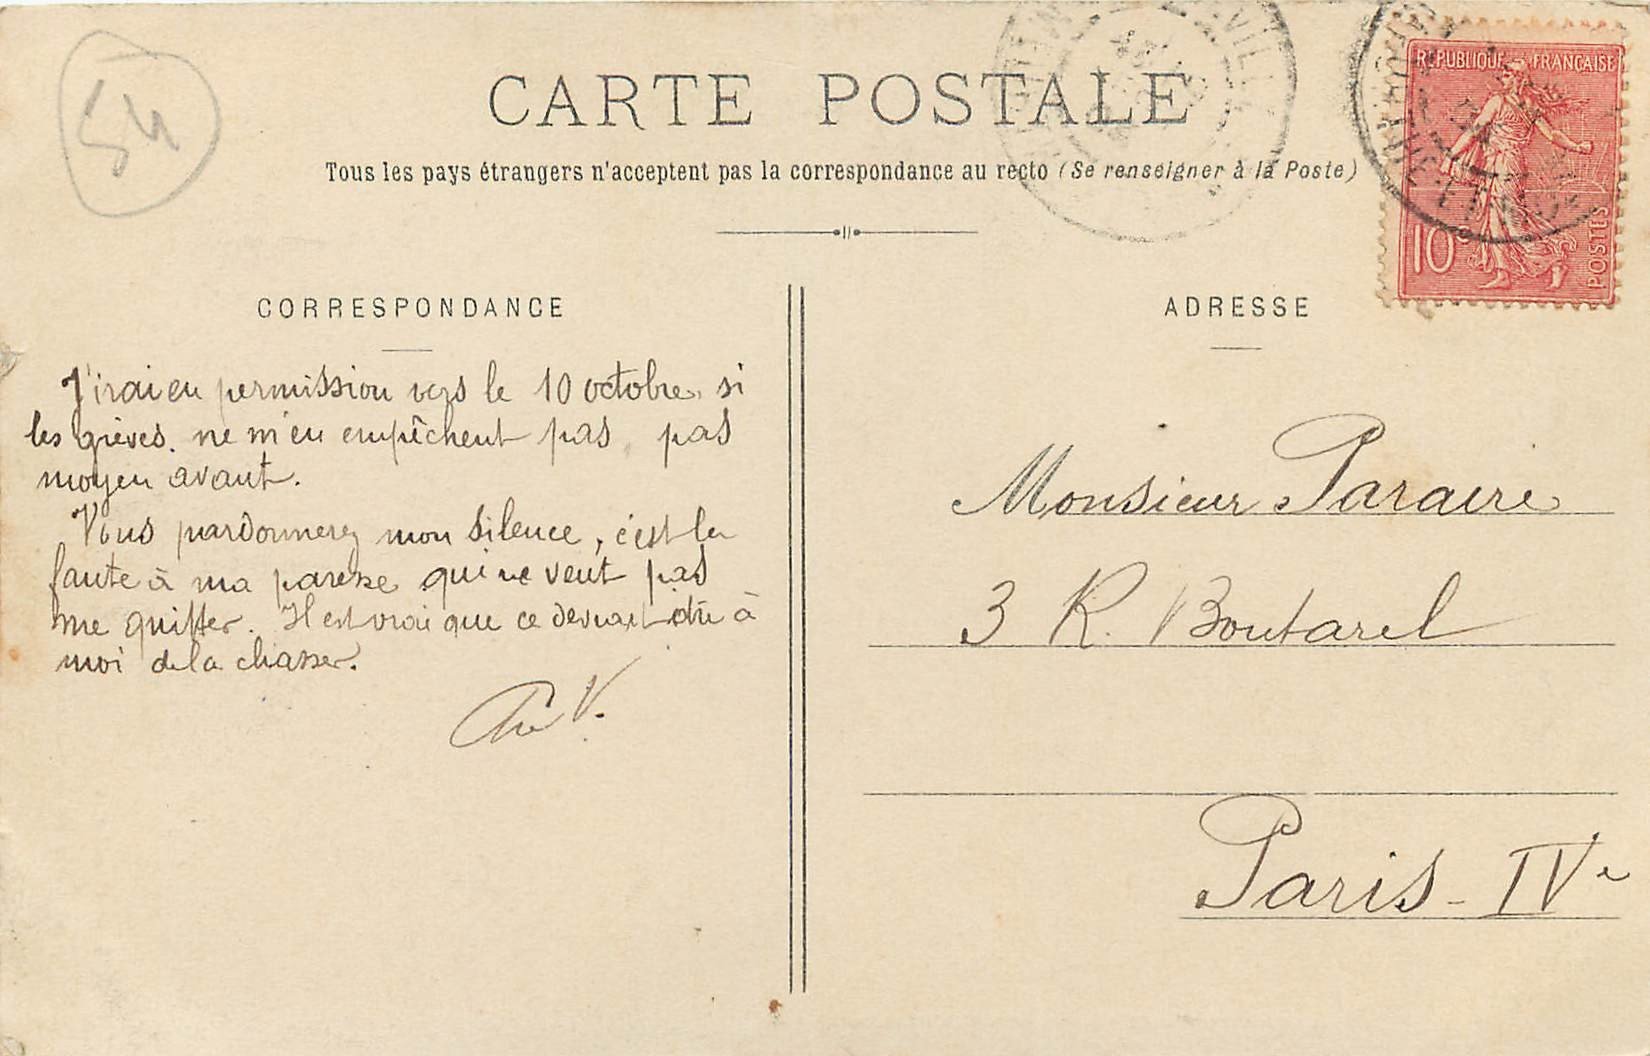 54
CARTE POSTALE
Tous les pays étrangers n'acceptent pas la correspondance au recto (Se renseigner à la Poste)
REPUBLIQUE FRANÇAISE
10c
POSTES
CORRESPONDANCE
J'irai en permission vers le 10 octobre, si
les grèves ne m'en empêchent pas, pas
moyen avant.
Vous pardonnerez mon silence, c'est la
faute à ma paresse qui ne veut pas
me quitter. Il est vrai que ce devrait être à
moi de la chasser.
V.
ADRESSE
Monsieur Paraire
3 R. Boutarel
Paris - IVe